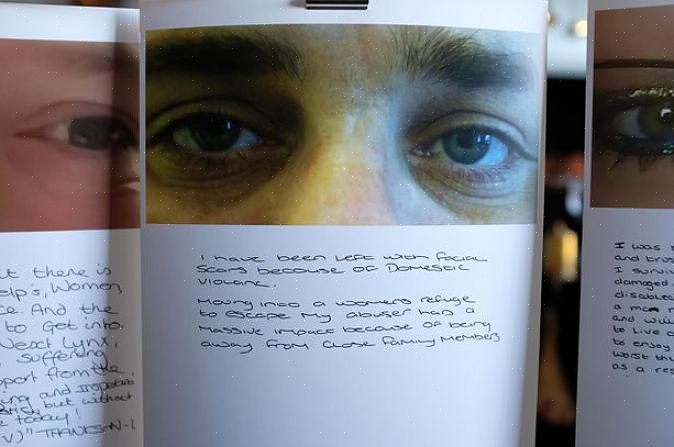 lt there is
elp's, Women,
ce. And the
to Get into.
Next Lynx,
suffering
pport from the
ing and
but without
e today!
V)" THANKS
I have been left with facial
scars because of Domestic
Violanc.
Moving into a womens refuge
to escape my abuser had a
Massive impact because of being
away from close family members
I was
and brus
I surviv
damaged
disable
a man
and will
to live o
to enjoy
worst thi
as a res